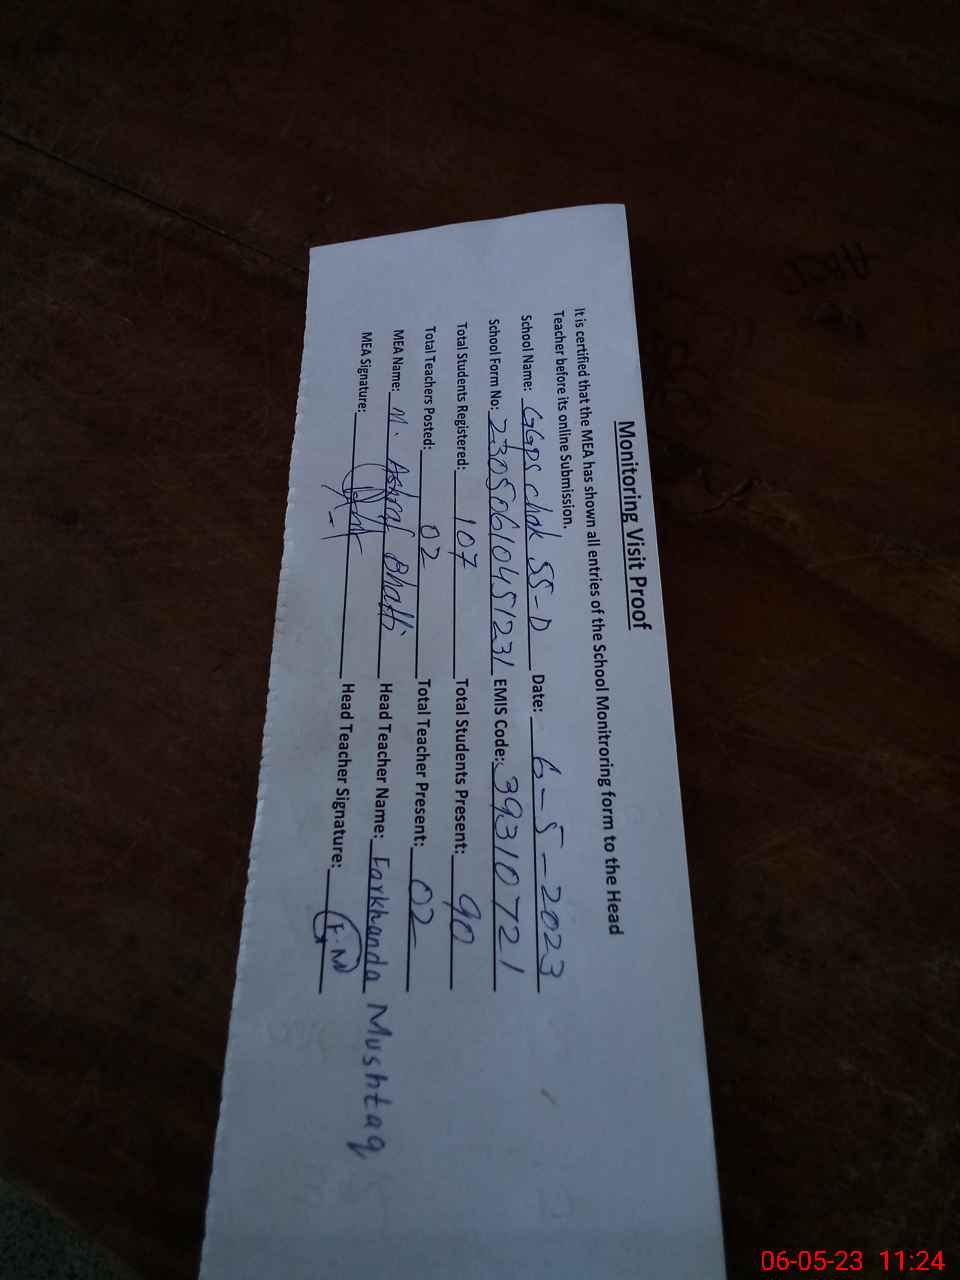 Monitoring Visit Proof
It is certified that the MEA has shown all entries of the School Monitroring form to the Head
Teacher before its online Submission.
School Name: GGPS Chak 55-D Date: 6-5-2023
School Form No: 23050610451231 EMIS Code: 39310721
Total Students Registered: 107 Total Students Present: 90
Total Teachers Posted: 02 Total Teacher Present: 02
MEA Name: M. Ashraf Bhatti Head Teacher Name: Farkhanda Mushtaq
MEA Signature: Head Teacher Signature: F.M
06-05-23 11:24